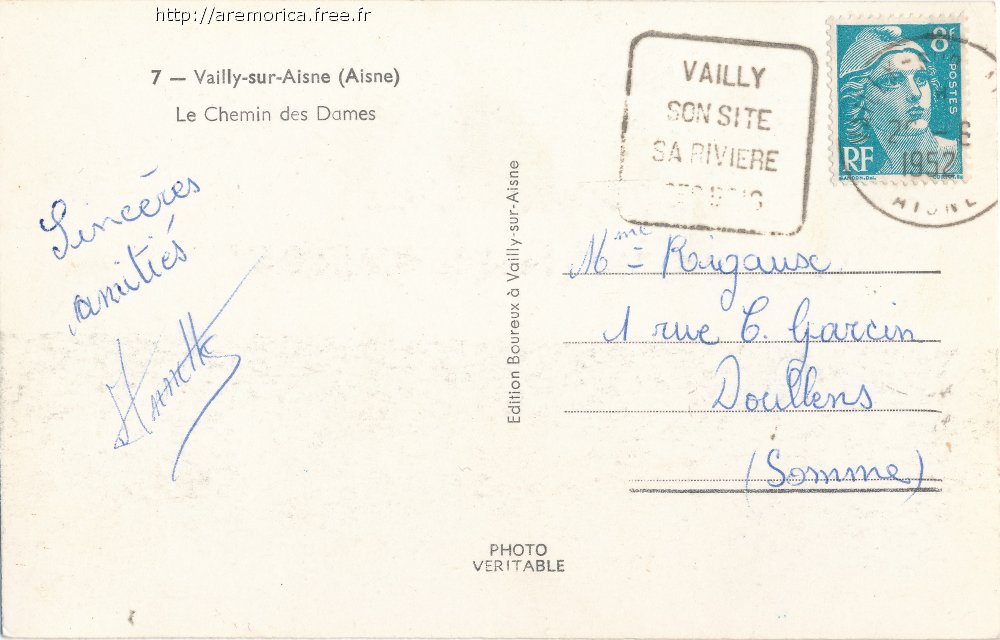 http://aremorica.free.fr
7 — Vailly-sur-Aisne (Aisne)
Le Chemin des Dames
Sincères
amitiés
Edition Boureux à Vailly-sur-Aisne
VAILLY
SON SITE
SA RIVIERE
8F
POSTES
RF
1952
AISNE
Mme Rigaux
1 rue C. Garcin
Doullens
(Somme)
PHOTO
VERITABLE